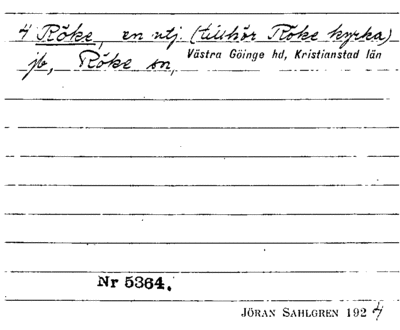 4 Röke, en utj. (tillhör Röke kyrka)
jb, Röke sn, Västra Göinge hd, Kristianstad län
Nr 5364.
JÖRAN SAHLGREN 1924